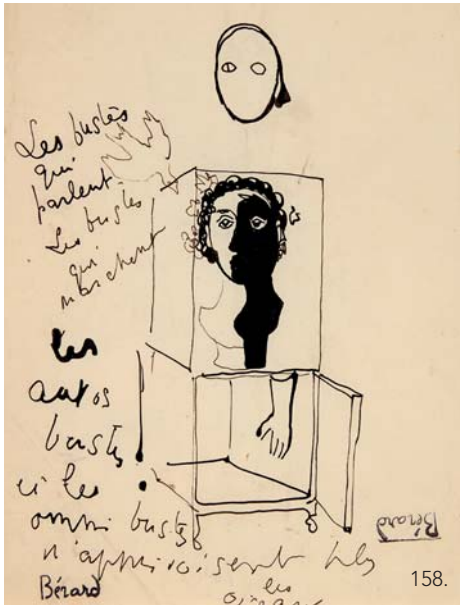 Les bustes
qui
parlent.
Les bustes
qui
marchent
les
autos
bustes
et les
omni bustes
n'apprivoisent
les
Bérard
Bérard
158.